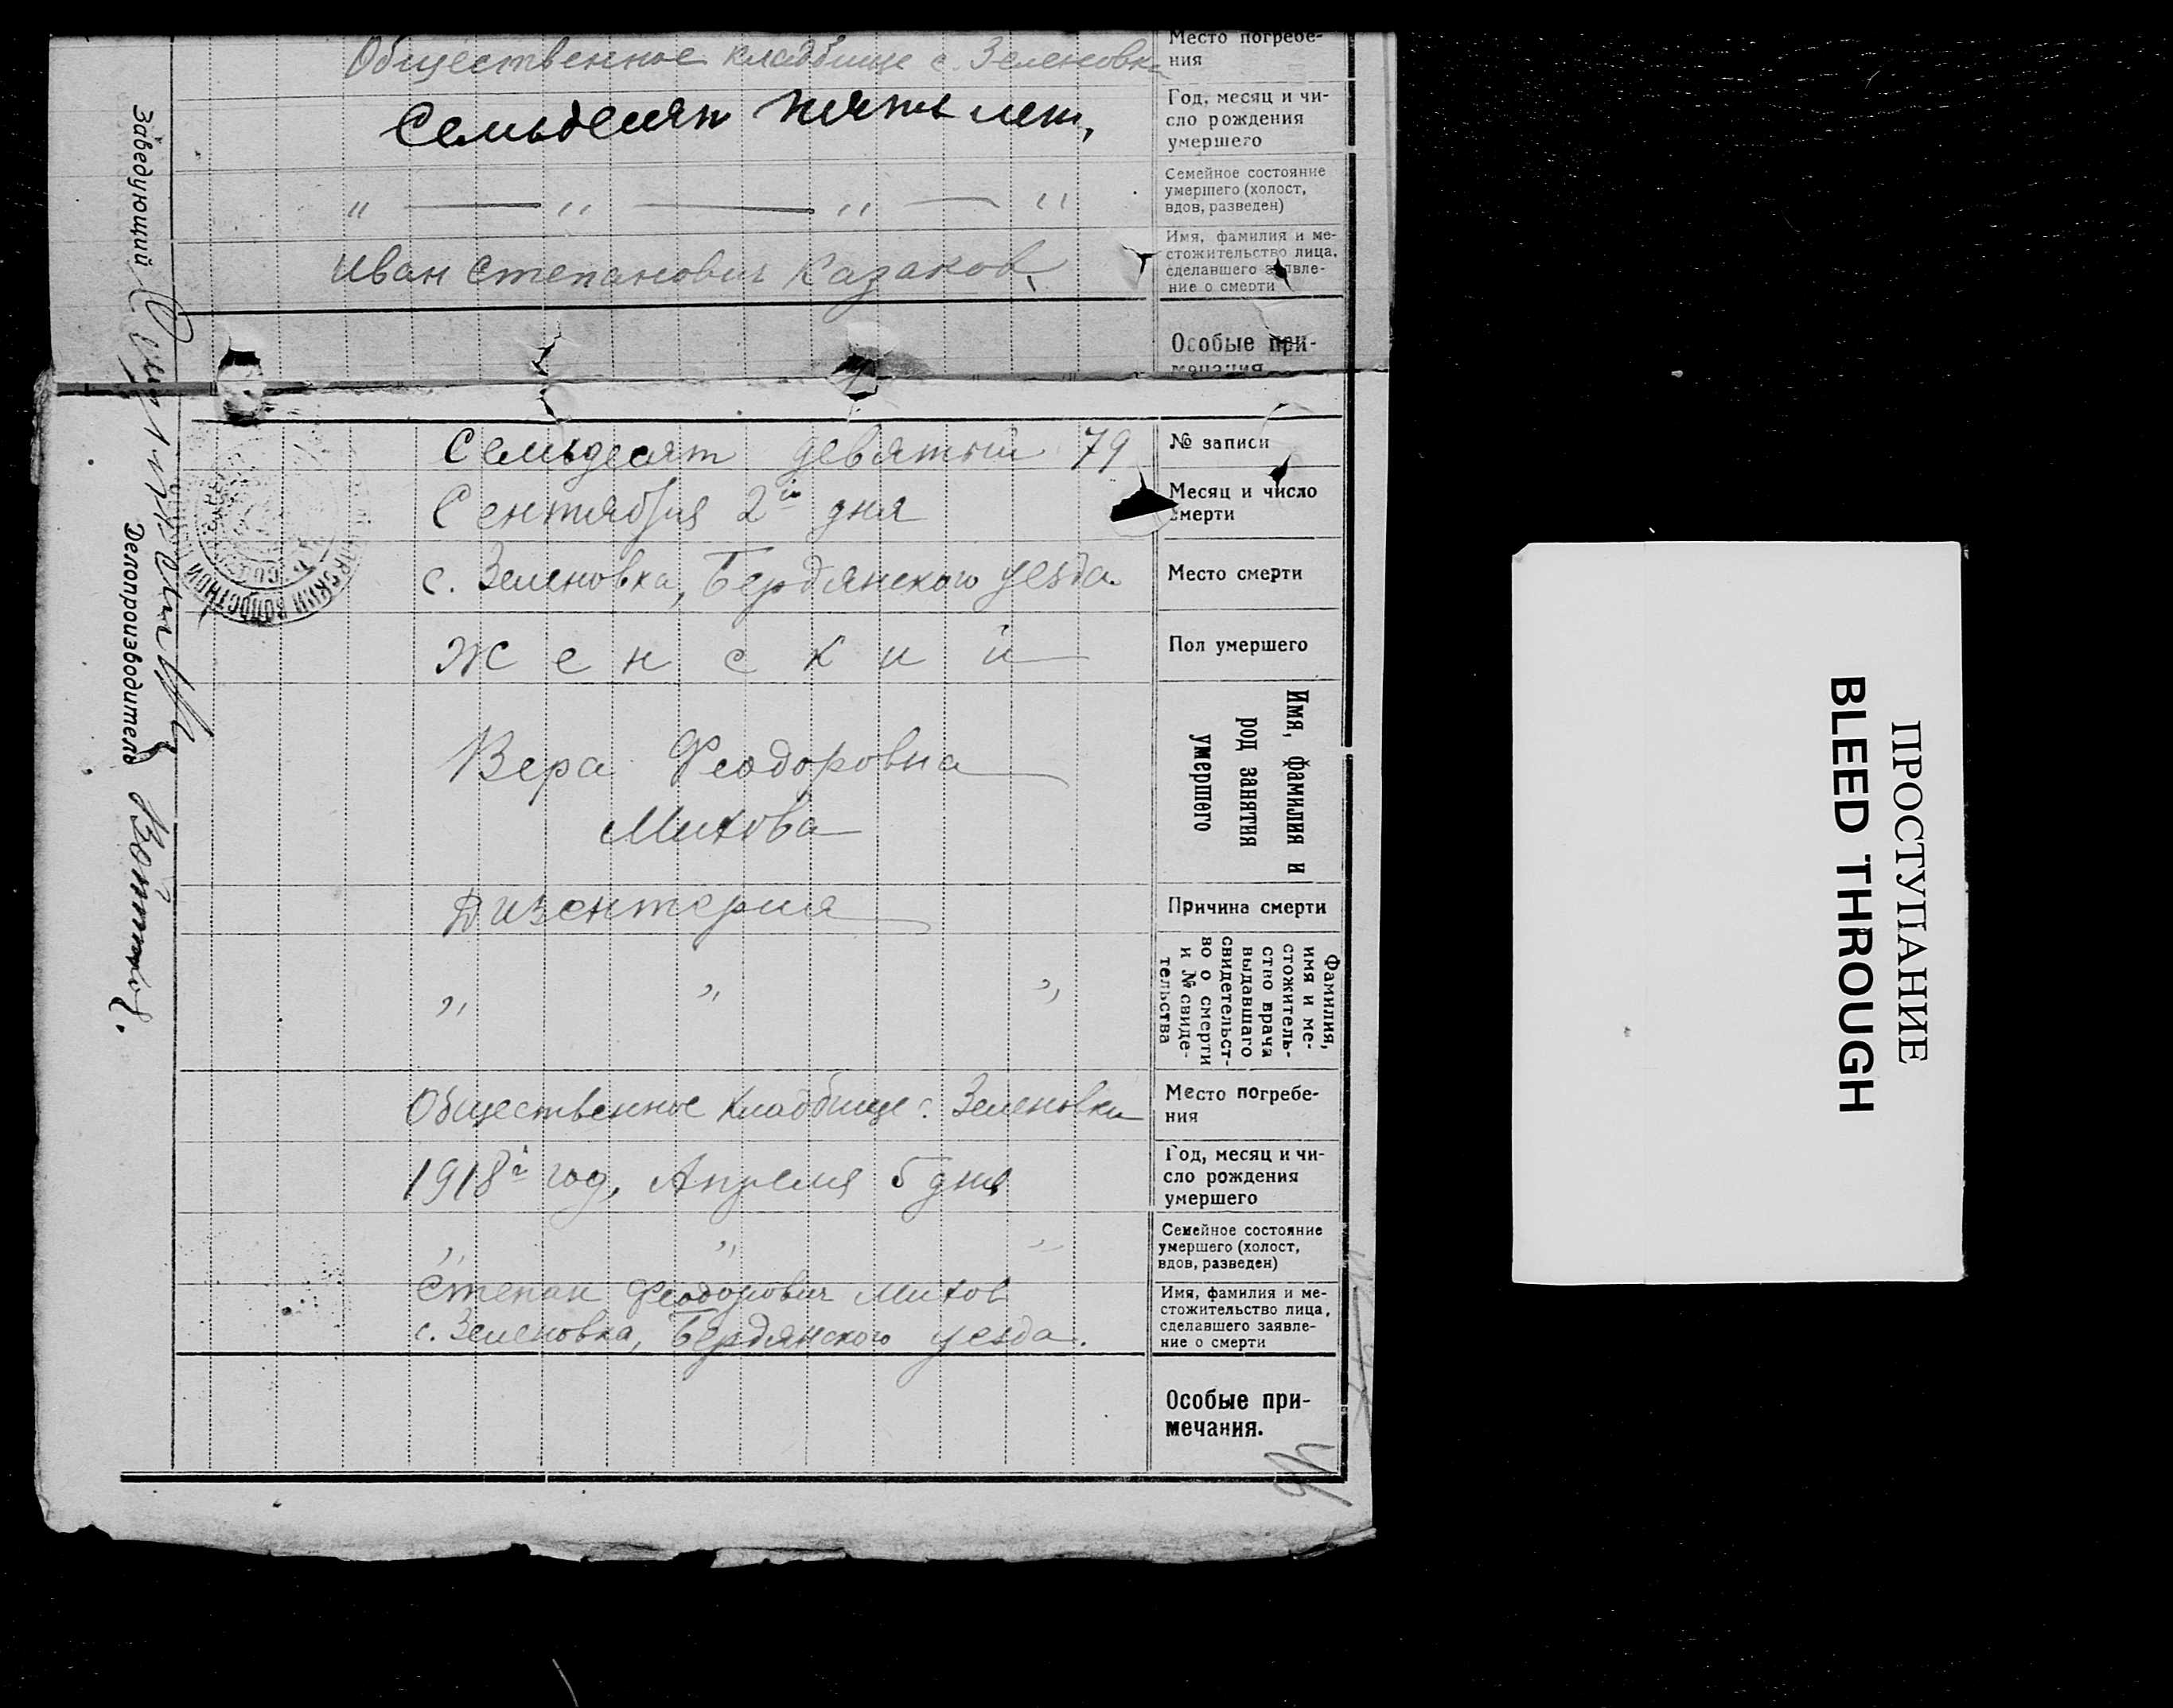 Общественное кладбище с. Зеленовка
Место погребе-
ния
Семьдесят пять лет,
Год, месяц и чи-
сло рождения
умершего
" — " — " — "
Семейное состояние
умершего (холост,
вдов, разведен)
Иван Степанович Казаков
Имя, фамилия и ме-
стожительство лица,
сделавшего заявле-
ние о смерти
Особые при-
мечания
Семьдесят девятый 79
№ записи
Сентября 2й дня
Месяц и число
смерти
с. Зеленовка, Бердянского уезда
Место смерти
Женский
Пол умершего
Вера Феодоровна
Митова
Имя, фамилия и
род занятия
умершего
Дизентерия
Причина смерти
" " "
Фамилия,
имя и ме-
стожитель-
ство врача
выдавшаго
свидетельст-
во о смерти
и № свиде-
тельства
Общественное кладбище с. Зеленовки
Место погребе-
ния
1918й год, Апреля 5 дня
Год, месяц и чи-
сло рождения
умершего
" " "
Семейное состояние
умершего (холост,
вдов, разведен)
Степан Феодорович Митов
с. Зеленовка, Бердянского уезда.
Имя, фамилия и ме-
стожительство лица,
сделавшего заявле-
ние о смерти
Особые при-
мечания.
Заведующий
Делопроизводитель
ВОЛОСТНОЙ
ПРОСТУПАНИЕ
BLEED THROUGH